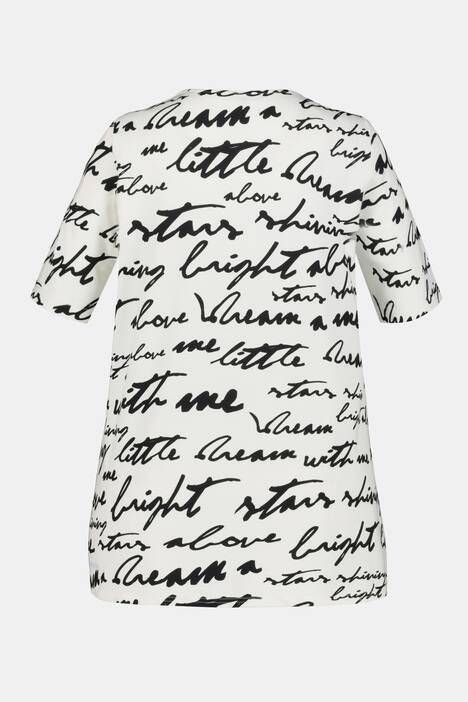 above
dream a stars shining
me little dream bright
above above
stars shining
ning bright above
above dream a me stars shining
above me little dream
with me stars shining
dream bright
little dream with me
bright stars shining
shining stars above bright
a dream a stars shining
bright